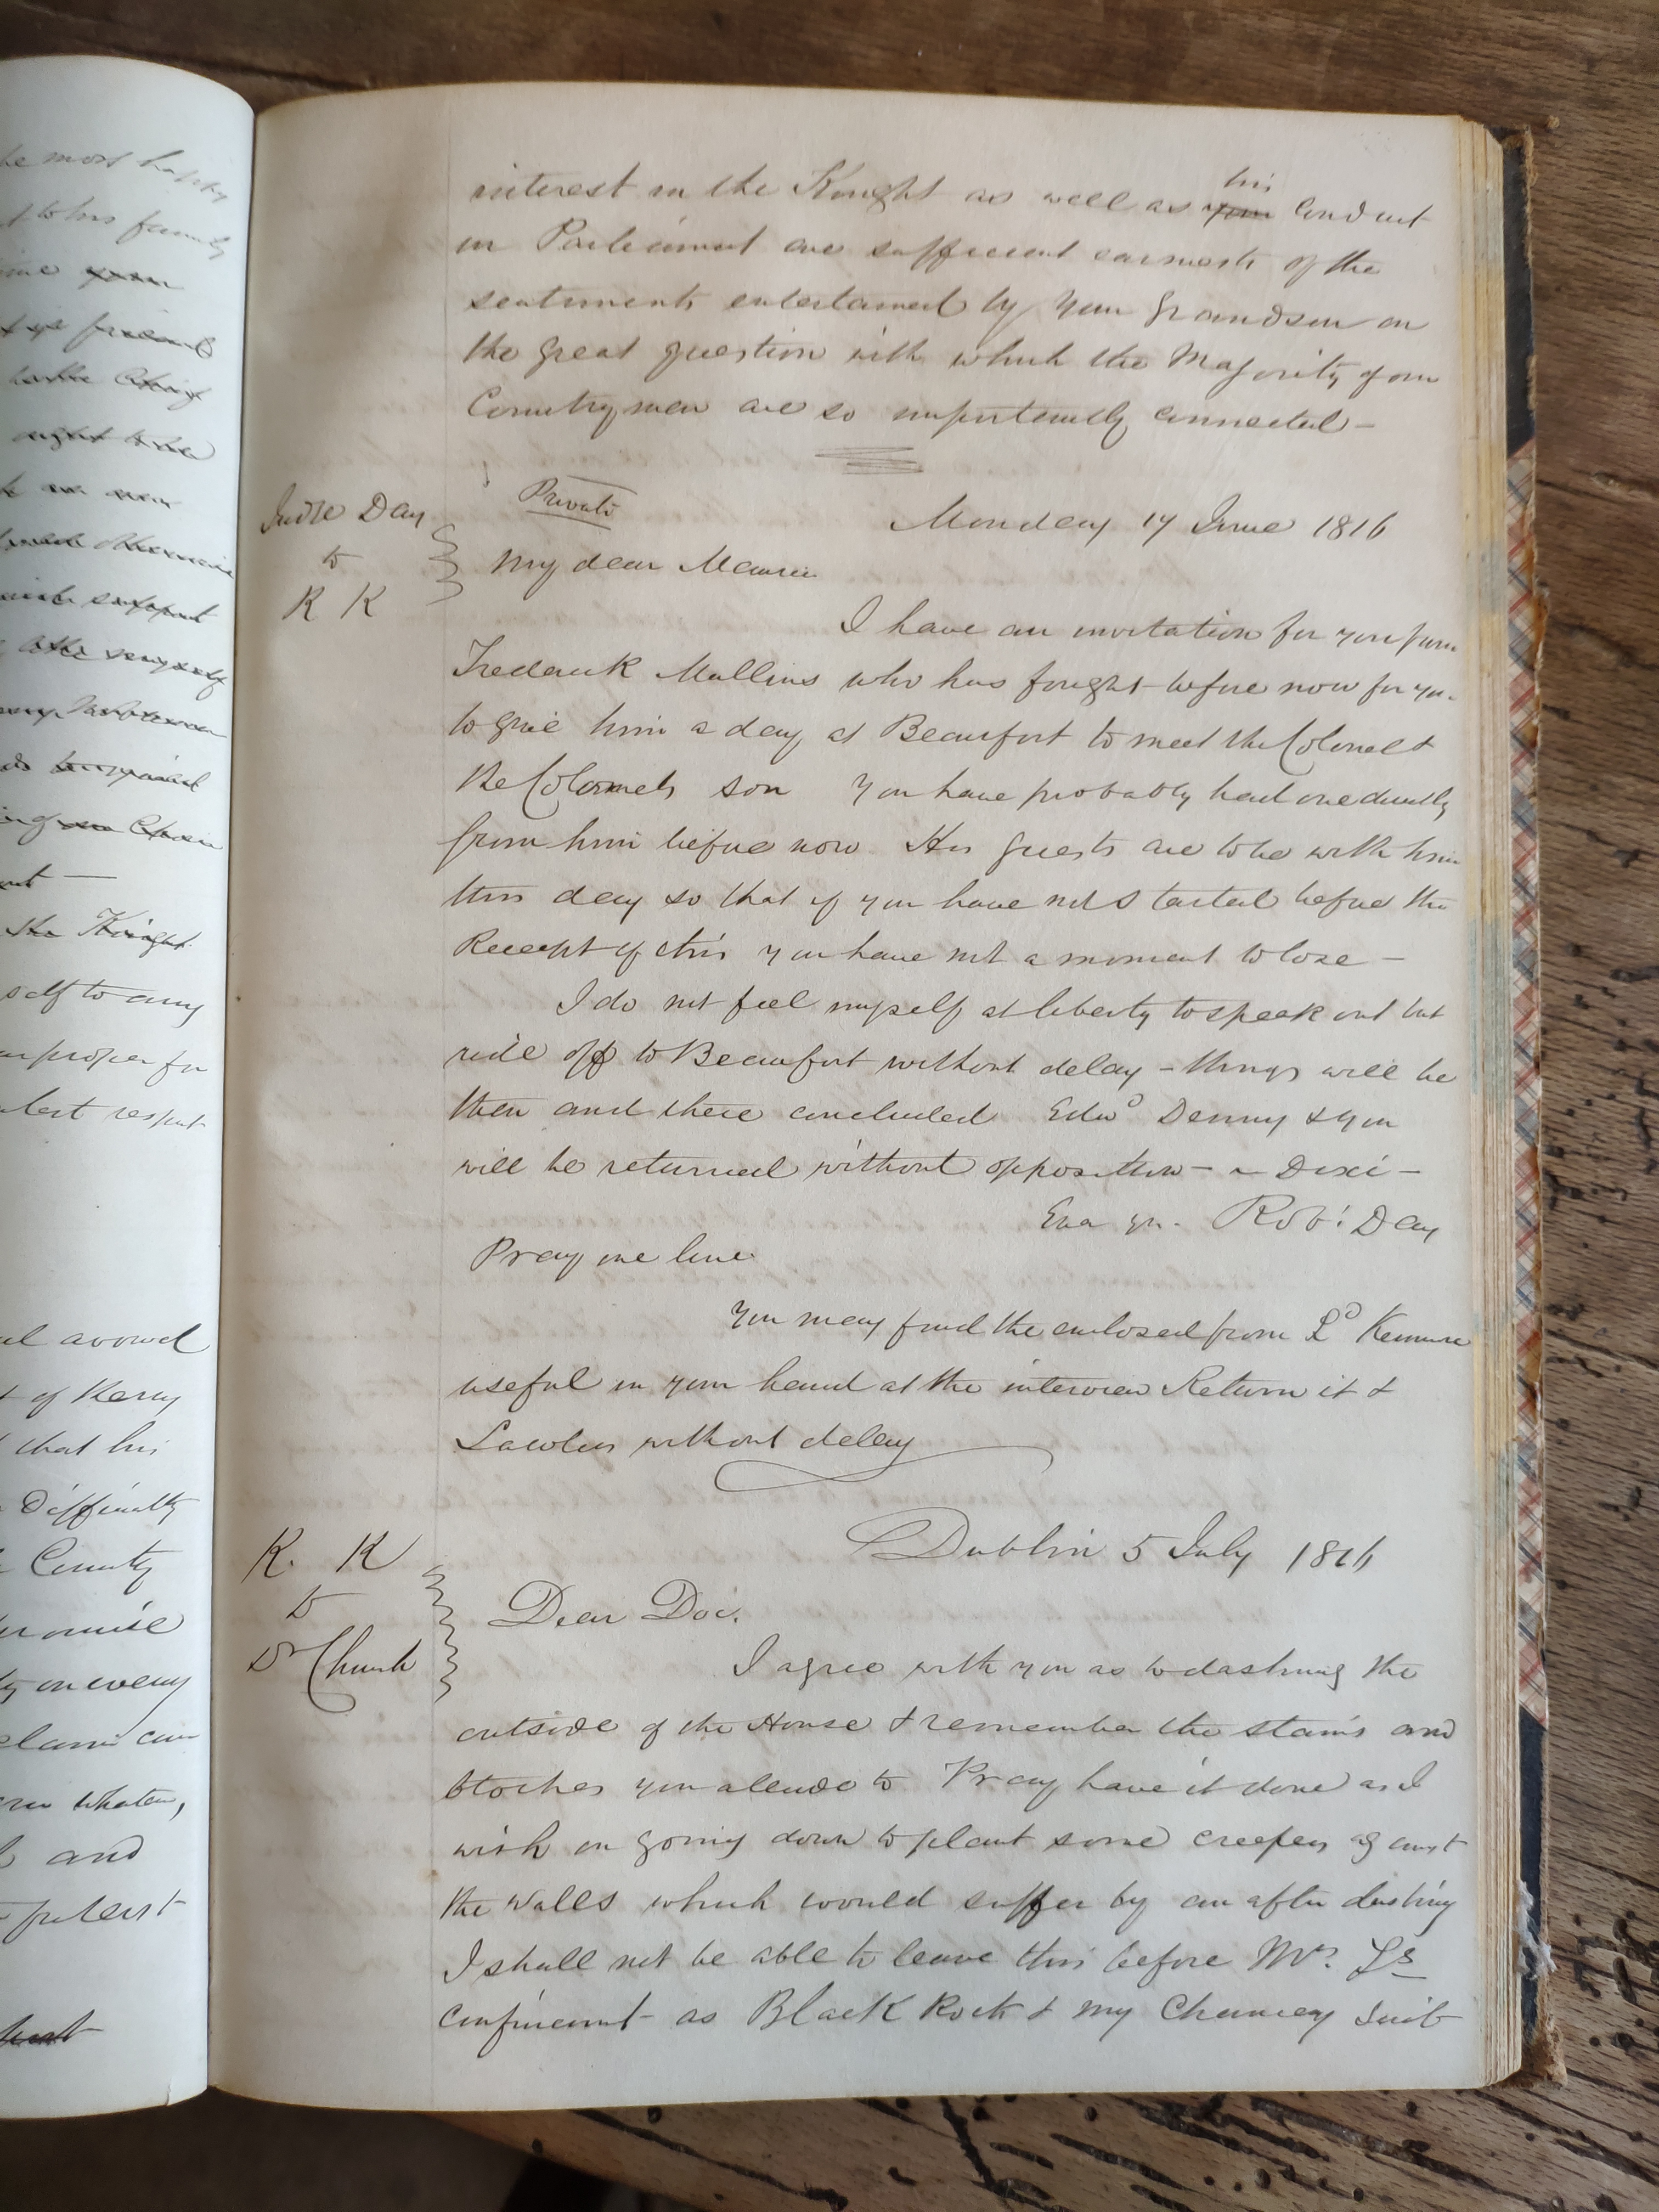 he most happy
t to his family
time
friend
ought to be
support
the very self
the Knight
self to any
proper for
respect
avowed
t of Kerry
that his
Difficulty
County
promise
on every
claim can
whatever,
and
his
interest in the Knight as well as your conduct
in Parliament are sufficient earnests of the
sentiments entertained by your Grandson on
the great question with which the Majority of our
Countrymen are so importantly connected —
Judge Day
to
R K
Private
Monday 17 June 1816
My dear Maurice
I have an invitation for you from
Frederick Mullins who has fought before now for you
to give him a day at Beaufort to meet the Colonel &
the Colonels son You have probably had one directly
from him before now His guests are to be with him
this day so that if you have not started before the
Receipt of this you have not a moment to lose —
I do not feel myself at liberty to speak out but
ride off to Beaufort without delay — things will be
then and there concluded Edwd Denny & you
will be returned without opposition — Dixi —
Ever yrs. Robt Day
Pray one line
You may find the enclosed from Ld Kenmare
useful in your hand at the interview Return it &
without delay
K. K
to
Dr Church
Dublin 5 July 1816
Dear Doc.
I agree with you as to dashing the
outside of the House & remember the stains and
blotches you alude to Pray have it done as I
wish on going down to plant some creepers against
the walls which would suffer by an after dashing
I shall not be able to leave this before Mrs. Fs
confinement as Black Rock & my Chancey Suit